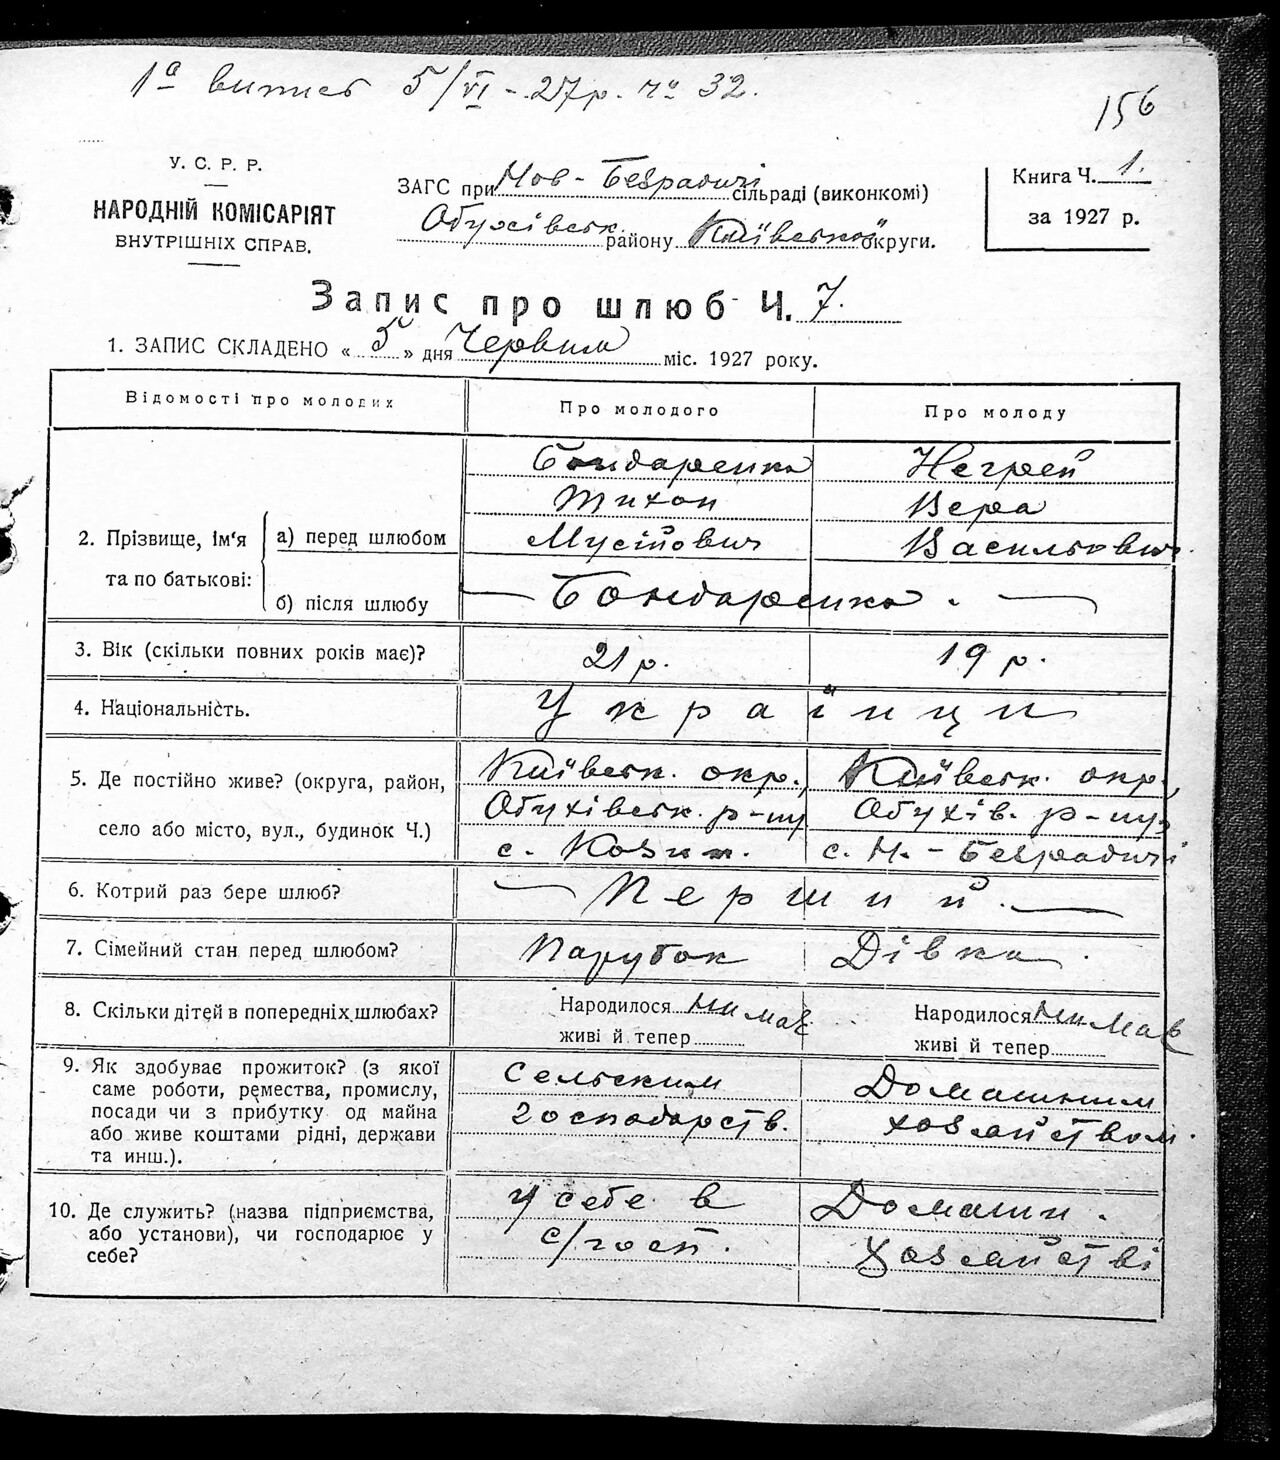 1ᵃ випись 5/VI - 27р. чо 32.
156
У. С. Р. Р.
НАРОДНІЙ КОМІСАРІЯТ
ВНУТРІШНІХ СПРАВ.
ЗАГС при Нов-Безрадичі сільраді (виконкомі)
Обухівськ. району Київської округи.
Книга Ч. 1.
за 1927 р.
Запис про шлюб Ч. 7.
1. ЗАПИС СКЛАДЕНО « 5 » дня Червня міс. 1927 року.
Відомості про молодих
Про молодого
Про молоду
2. Прізвище, ім'я та по батькові:
а) перед шлюбом
Бондаренко
Тихон
Мусійович
Негрей
Вера
Васильович
б) після шлюбу
— Бондаренко. —
3. Вік (скільки повних років має)?
21 р.
19 р.
4. Національність.
Українци
5. Де постійно живе? (округа, район,
село або місто, вул., будинок Ч.)
Київськ. окр.,
Обухівськ. р-ну
с. Козин.
Київськ. окр,
Обухів. р-ну,
с. Н.-Безрадичі
6. Котрий раз бере шлюб?
— Перший. —
7. Сімейний стан перед шлюбом?
Парубок
Дівка.
8. Скільки дітей в попередніх шлюбах?
Народилося нимає
живі й тепер
Народилося нимає
живі й тепер
9. Як здобуває прожиток? (з якої
саме роботи, ремества, промислу,
посади чи з прибутку од майна
або живе коштами рідні, держави
та инш.).
Сельским
господарств.
Домашним
хозяйством.
10. Де служить? (назва підприємства,
або установи), чи господарює у
себе?
У себе в
с/госп.
Домашн.
Хозяйстві